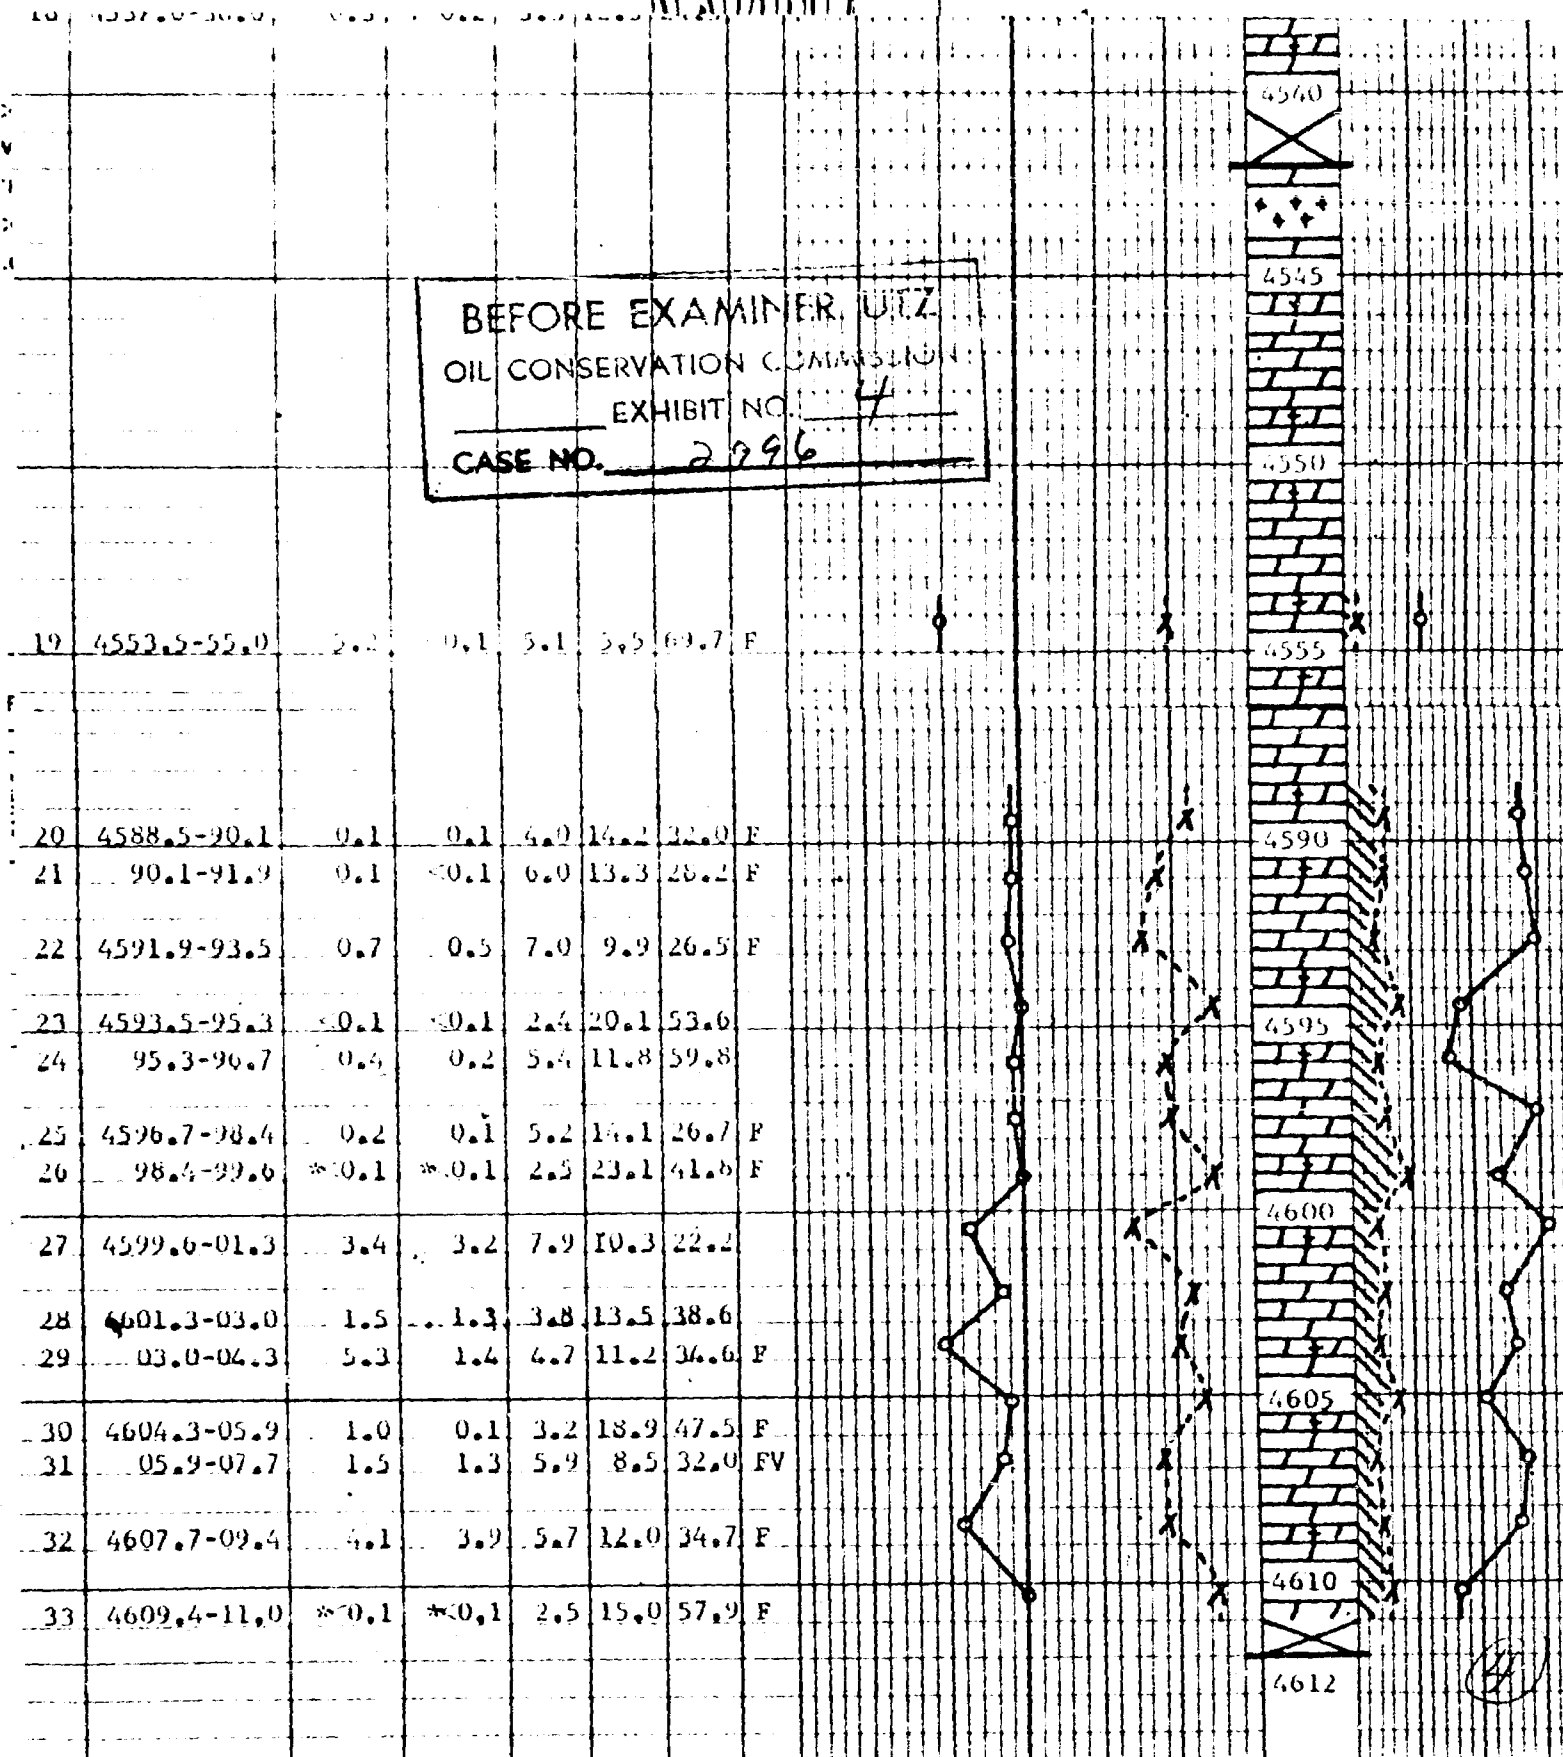 4540
4545
BEFORE EXAMINER UTZ
OIL CONSERVATION COMMISSION
EXHIBIT NO. 4
CASE NO.
4550
19 4553.5-55.0 5.2 0.1 5.1 5.5 69.7 F
4555
20 4588.5-90.1 0.1 0.1 4.0 14.2 32.0 F
4590
21 90.1-91.9 0.1 <0.1 6.0 13.3 28.2 F
22 4591.9-93.5 0.7 0.5 7.0 9.9 26.5 F
23 4593.5-95.3 <0.1 <0.1 2.4 20.1 53.6
4595
24 95.3-96.7 0.4 0.2 5.4 11.8 59.8
25 4596.7-98.4 0.2 0.1 5.2 14.1 26.7 F
26 98.4-99.6 *<0.1 *<0.1 2.5 23.1 41.8 F
4600
27 4599.6-01.3 3.4 3.2 7.9 10.3 22.2
28 4601.3-03.0 1.5 1.3 3.8 13.5 38.6
29 03.0-04.3 5.3 1.4 4.7 11.2 34.6 F
4605
30 4604.3-05.9 1.0 0.1 3.2 18.9 47.5 F
31 05.9-07.7 1.5 1.3 5.9 8.5 32.0 FV
32 4607.7-09.4 4.1 3.9 5.7 12.0 34.7 F
4610
33 4609.4-11.0 *<0.1 *<0.1 2.5 15.0 57.9 F
4612
4